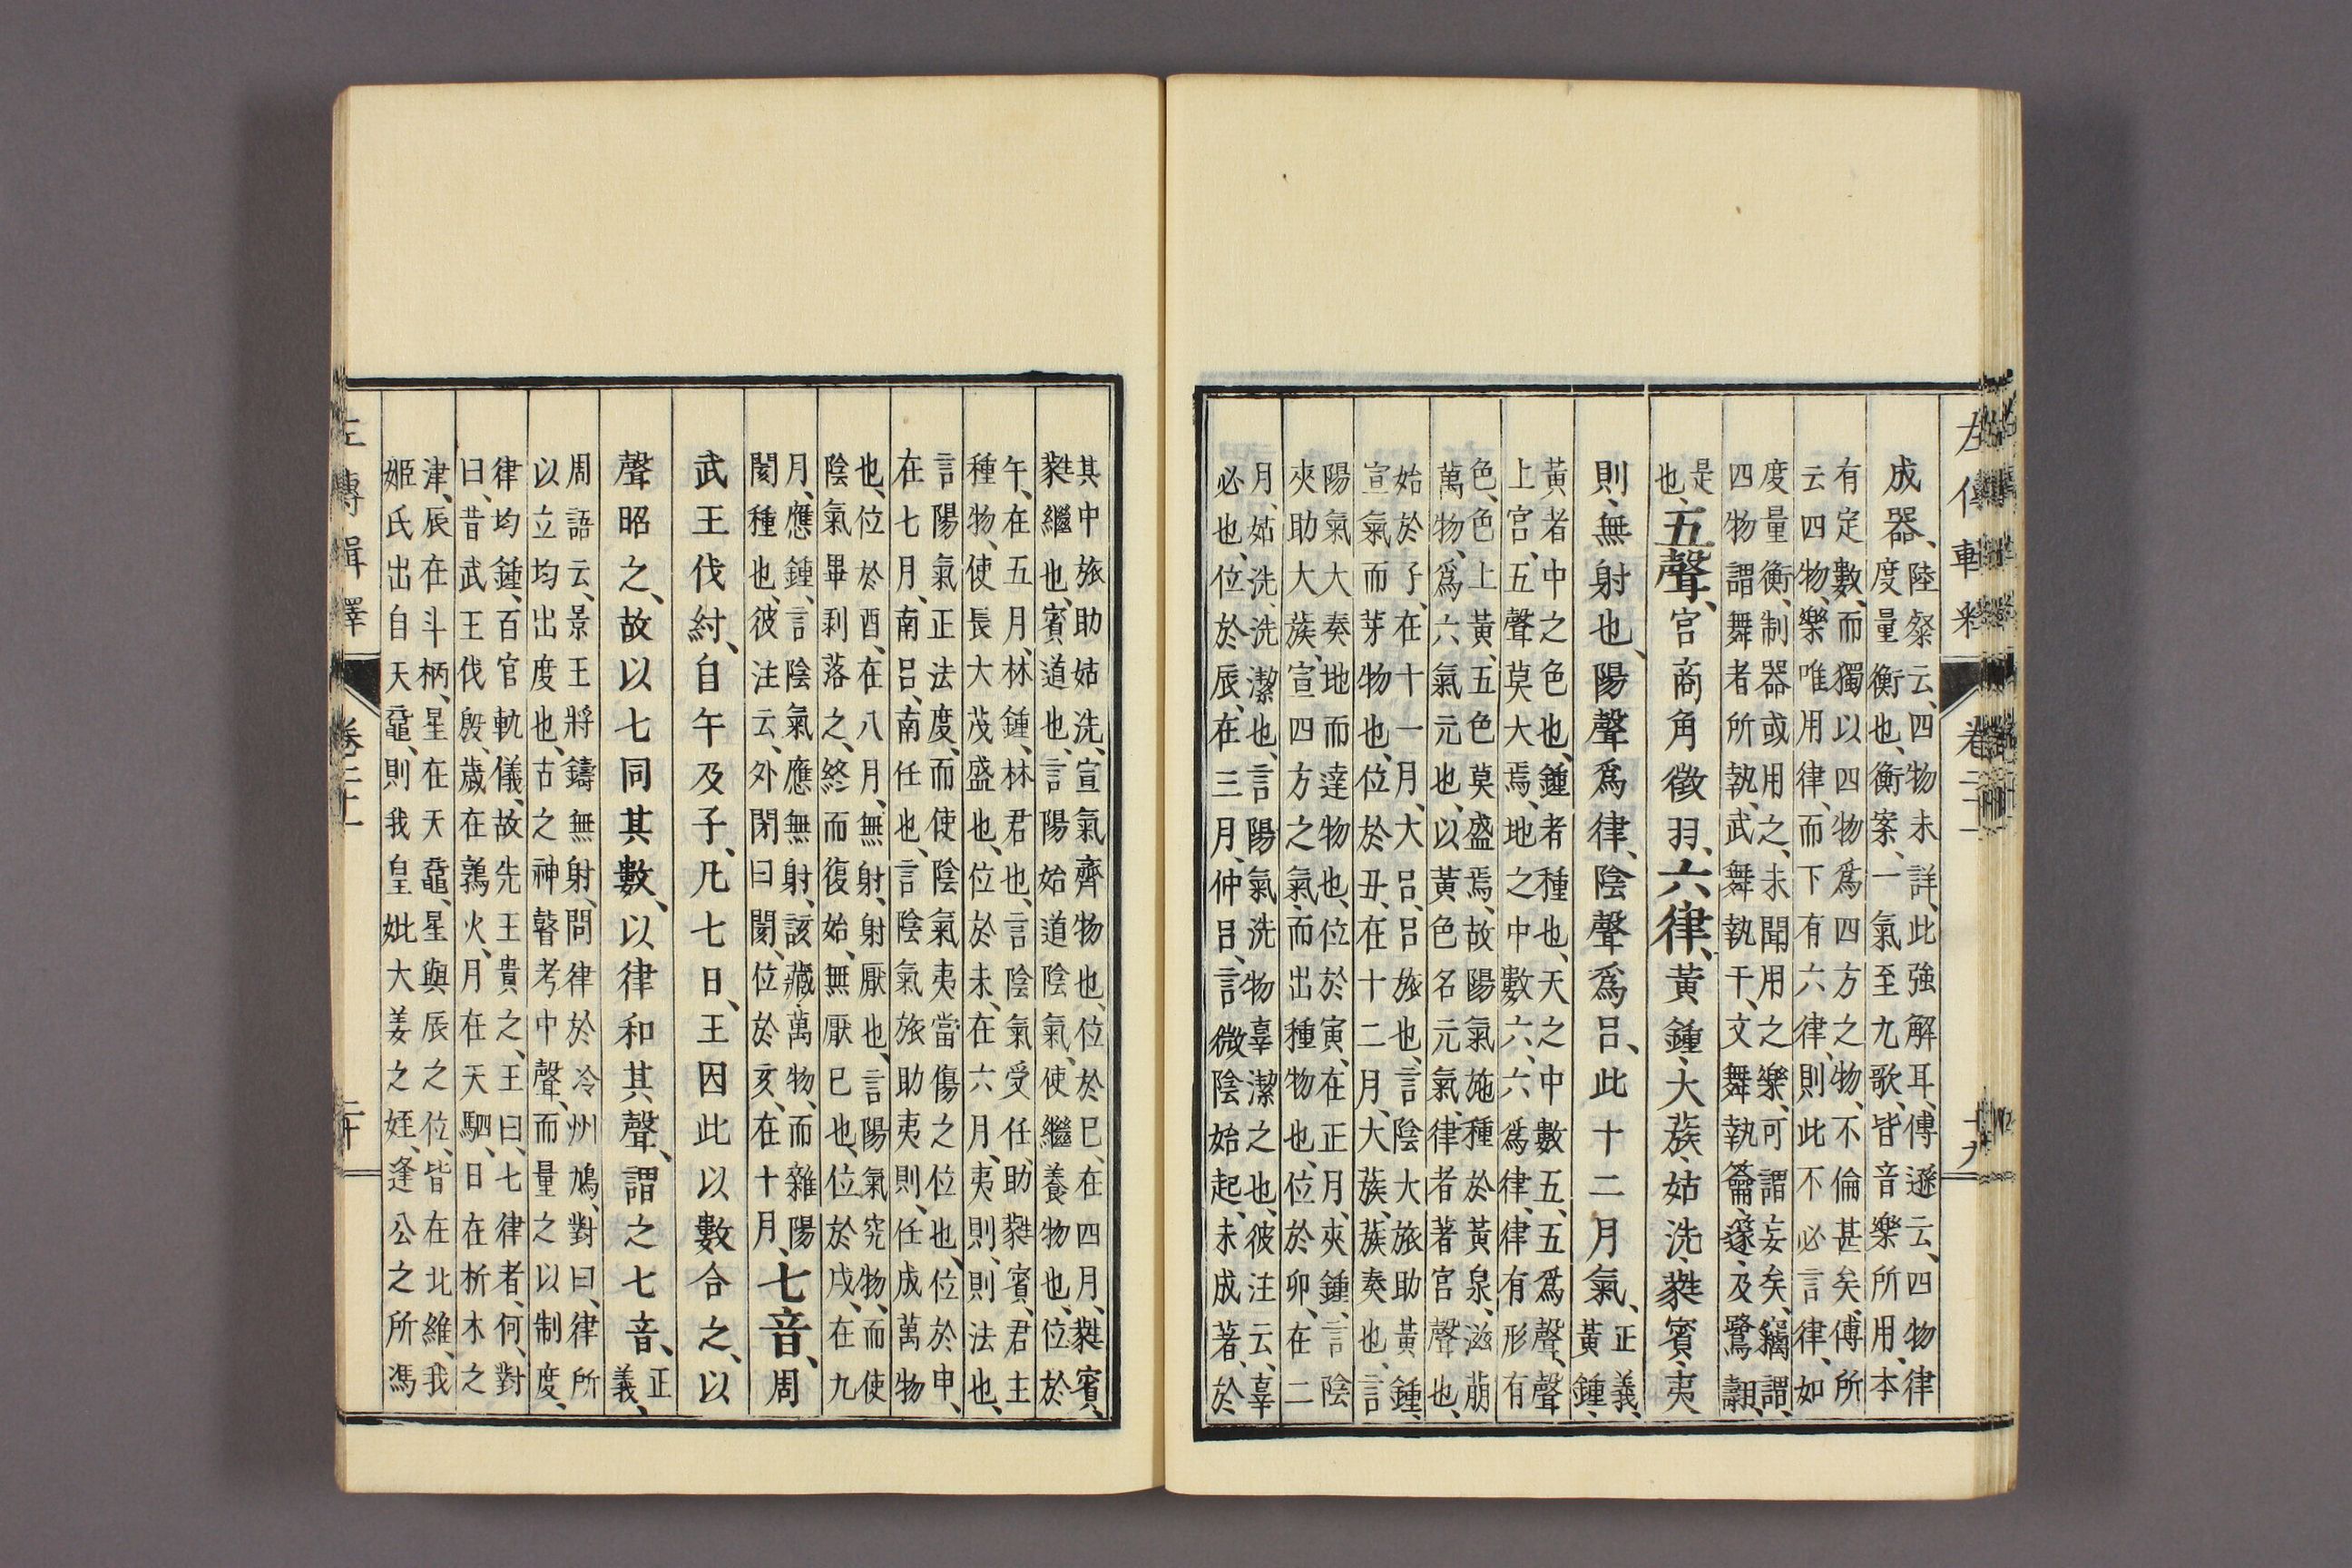 左傳輯釋 卷二十一 十九
成器、陸粲云、四物未詳、此強解耳、傅遜云、四物律
度量衡也、衡案、一氣至九歌、皆音樂所用、本
有定數、而獨以四物爲四方之物、不倫甚矣、傅所
云四物、樂唯用律、而下有六律、則此不必言律、如
度量衡、制器或用之、未聞用之樂、可謂妄矣、竊謂、
四物謂舞者所執、武舞執干、文舞執籥、邃、及鷺翿、
是也、五聲、宮商角徵羽、六律、黃鍾、大蔟、姑洗、蕤賓、夷
則、無射也、陽聲爲律、陰聲爲呂、此十二月氣、正義、黃鍾
黃者中之色也、鍾者種也、天之中數五、五爲聲、聲
上宮、五聲莫大焉、地之中數六、六爲律、律有形有
色、色上黃、五色莫盛焉、故陽氣施種於黃泉、滋萠
萬物、爲六氣元也、以黃色名元氣、律者著宮聲也、
始於子、在十一月、大呂、呂旅也、言陰大旅助黃鍾、
宣氣而芽物也、位於丑、在十二月、大蔟、蔟奏也、言
陽氣大奏地而達物也、位於寅、在正月、夾鍾、言陰
夾助大蔟、宣四方之氣、而出種物也、位於卯、在二
月、姑洗、洗潔也、言陽氣洗物辜潔之也、彼注云、辜
必也、位於辰、在三月、仲呂、言微陰始起、未成著、於
其中旅助姑洗、宣氣齊物也、位於巳、在四月、蕤賓、
蕤繼也、賓道也、言陽始道陰氣、使繼養物也、位於
午、在五月、林鍾、林君也、言陰氣受任、助蕤賓、君主
種物、使長大茂盛也、位於未、在六月、夷則、則法也、
言陽氣正法度、而使陰氣夷當傷之位也、位於申、
在七月、南呂、南任也、言陰氣旅助夷則、任成萬物
也、位於酉、在八月、無射、射厭也、言陽氣究物、而使
陰氣畢剥落之、終而復始、無厭已也、位於戌、在九
月、應鍾、言陰氣應無射、該藏萬物、而雜陽
閡種也、彼注云、外閉曰閡、位於亥、在十月、七音、周
武王伐紂、自午及子、凡七日、王因此以數合之、以
聲昭之、故以七同其數、以律和其聲、謂之七音、正義、
周語云、景王將鑄無射、問律於泠州鳩、對曰、律所
以立均出度也、古之神瞽考中聲、而量之以制度、
律均鍾、百官軌儀、故先王貴之、王曰、七律者、何、對
曰、昔武王伐殷、歲在鶉火、月在天駟、日在析木之
津、辰在斗柄、星在天黿、星與辰之位、皆在北維、我
姬氏出自天黿、則我皇妣大姜之姪、逢公之所馮
左傳輯釋 卷二十一 二十